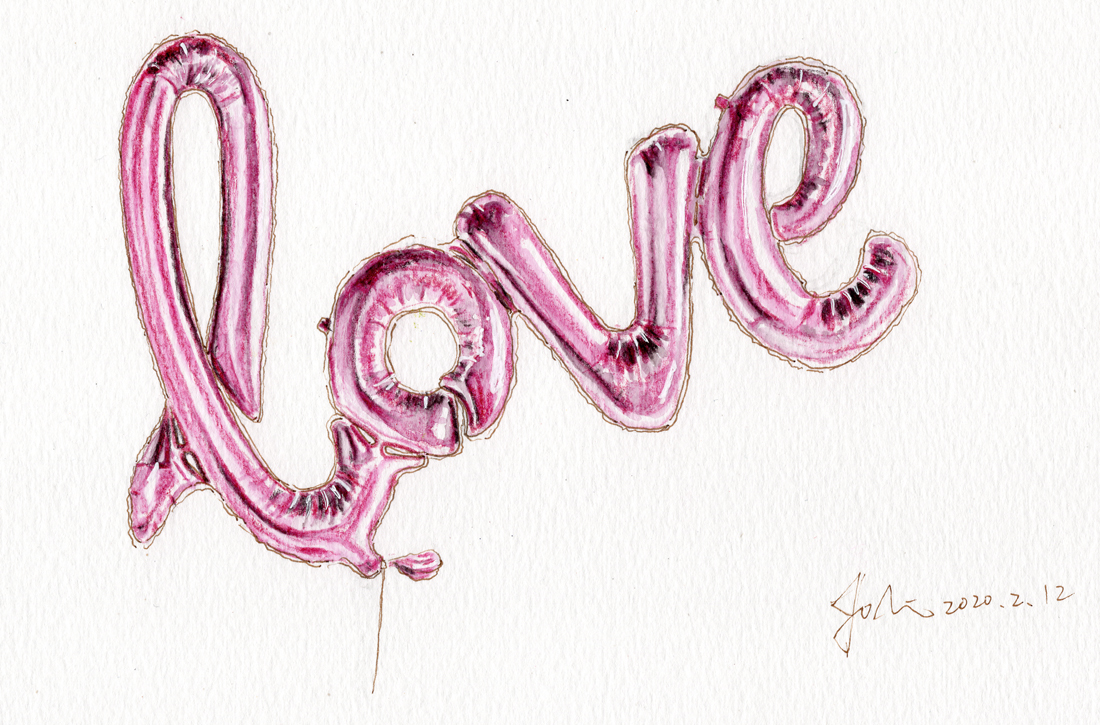 love
2020.2.12